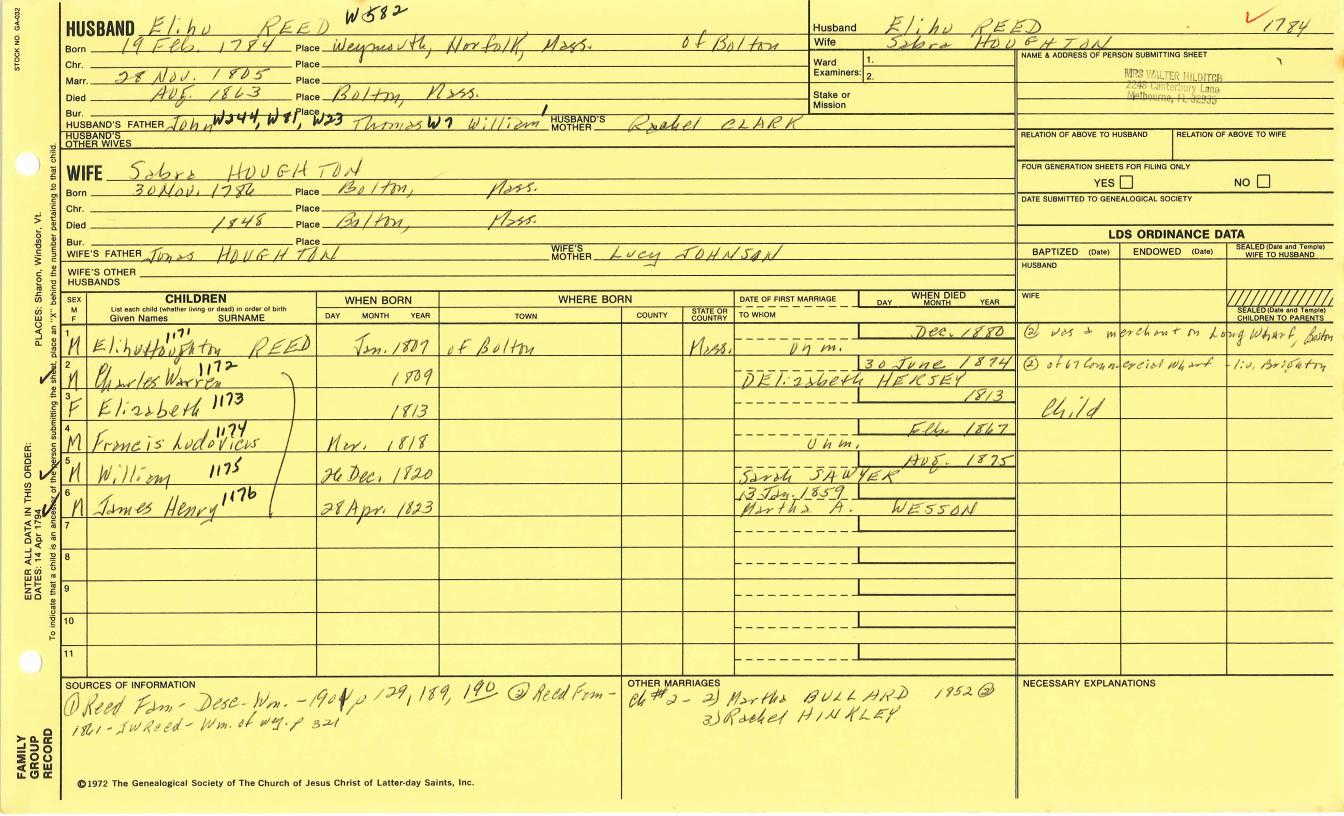 STOCK NO. GA-032
HUSBAND Elihu REED W582
Born 19 Feb. 1784 Place Weymouth, Norfolk, Mass. of Bolton
Chr. Place
Marr. 28 Nov. 1805 Place
Died Aug. 1863 Place Bolton, Mass.
Bur. Place
HUSBAND'S FATHER John W244, W81, W23 Thomas W7 William 1 HUSBAND'S MOTHER Rachel CLARK
HUSBAND'S OTHER WIVES
WIFE Sabra HOUGHTON
Born 30 Nov. 1786 Place Bolton, Mass.
Chr. Place
Died 1848 Place Bolton, Mass.
Bur. Place
WIFE'S FATHER Jonas HOUGHTON WIFE'S MOTHER Lucy JOHNSON
WIFE'S OTHER HUSBANDS
Husband Elihu REED 1784
Wife Sabra HOUGHTON
Ward Examiners: 1.
2.
Stake or Mission
NAME & ADDRESS OF PERSON SUBMITTING SHEET
MRS WALTER HILDITCH
2248 Canterbury Lane
Melbourne, FL 32935
RELATION OF ABOVE TO HUSBAND RELATION OF ABOVE TO WIFE
FOUR GENERATION SHEETS FOR FILING ONLY
YES NO
DATE SUBMITTED TO GENEALOGICAL SOCIETY
LDS ORDINANCE DATA
BAPTIZED (Date) ENDOWED (Date) SEALED (Date and Temple) WIFE TO HUSBAND
HUSBAND
WIFE
SEALED (Date and Temple) CHILDREN TO PARENTS
SEX M F CHILDREN WHEN BORN WHERE BORN DATE OF FIRST MARRIAGE WHEN DIED
List each child (whether living or dead) in order of birth
Given Names SURNAME DAY MONTH YEAR TOWN COUNTY STATE OR COUNTRY TO WHOM DAY MONTH YEAR
1 M Elihu Houghton 1171 REED Jan. 1807 of Bolton Mass. unm. Dec. 1880 (2) was a merchant on Long Wharf, Boston
2 M Charles Warren 1172 1809 DElizabeth HERSEY 30 June 1874 (2) of 67 Commercial Wharf - liv. Brighton
3 F Elizabeth 1173 1813 1813 Child
4 M Francis Ludovicus 1174 Mar. 1818 unm. Feb. 1867
5 M William 1175 26 Dec. 1820 Sarah SAWYER Aug. 1875
6 M James Henry 1176 28 Apr. 1823 13 Jan. 1859 Martha A. WESSON
7
8
9
10
11
SOURCES OF INFORMATION
(1) Reed Fam - Desc. Wm. - 1901 p 129, 189, 190 (2) Reed Fam -
1861 - JWReed - Wm. of Wey. p 321
OTHER MARRIAGES
Ch #2 - 2) Martha BULLARD 1852 (2)
3) Rachel HINKLEY
NECESSARY EXPLANATIONS
©1972 The Genealogical Society of The Church of Jesus Christ of Latter-day Saints, Inc.
FAMILY GROUP RECORD
ENTER ALL DATA IN THIS ORDER:
DATES: 14 Apr 1794
PLACES: Sharon, Windsor, Vt.
To indicate that a child is an ancestor of the person submitting the sheet, place an "X" behind the number pertaining to that child.